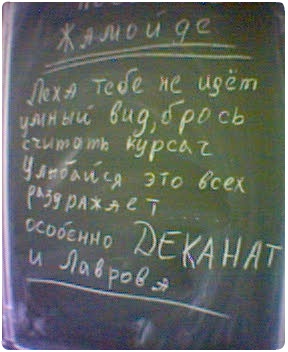 Жамойде
Леха тебе не идёт
умный вид, брось
считать курсач
Улыбайся это всех
раздражает
особенно ДЕКАНАТ
и Лаврова